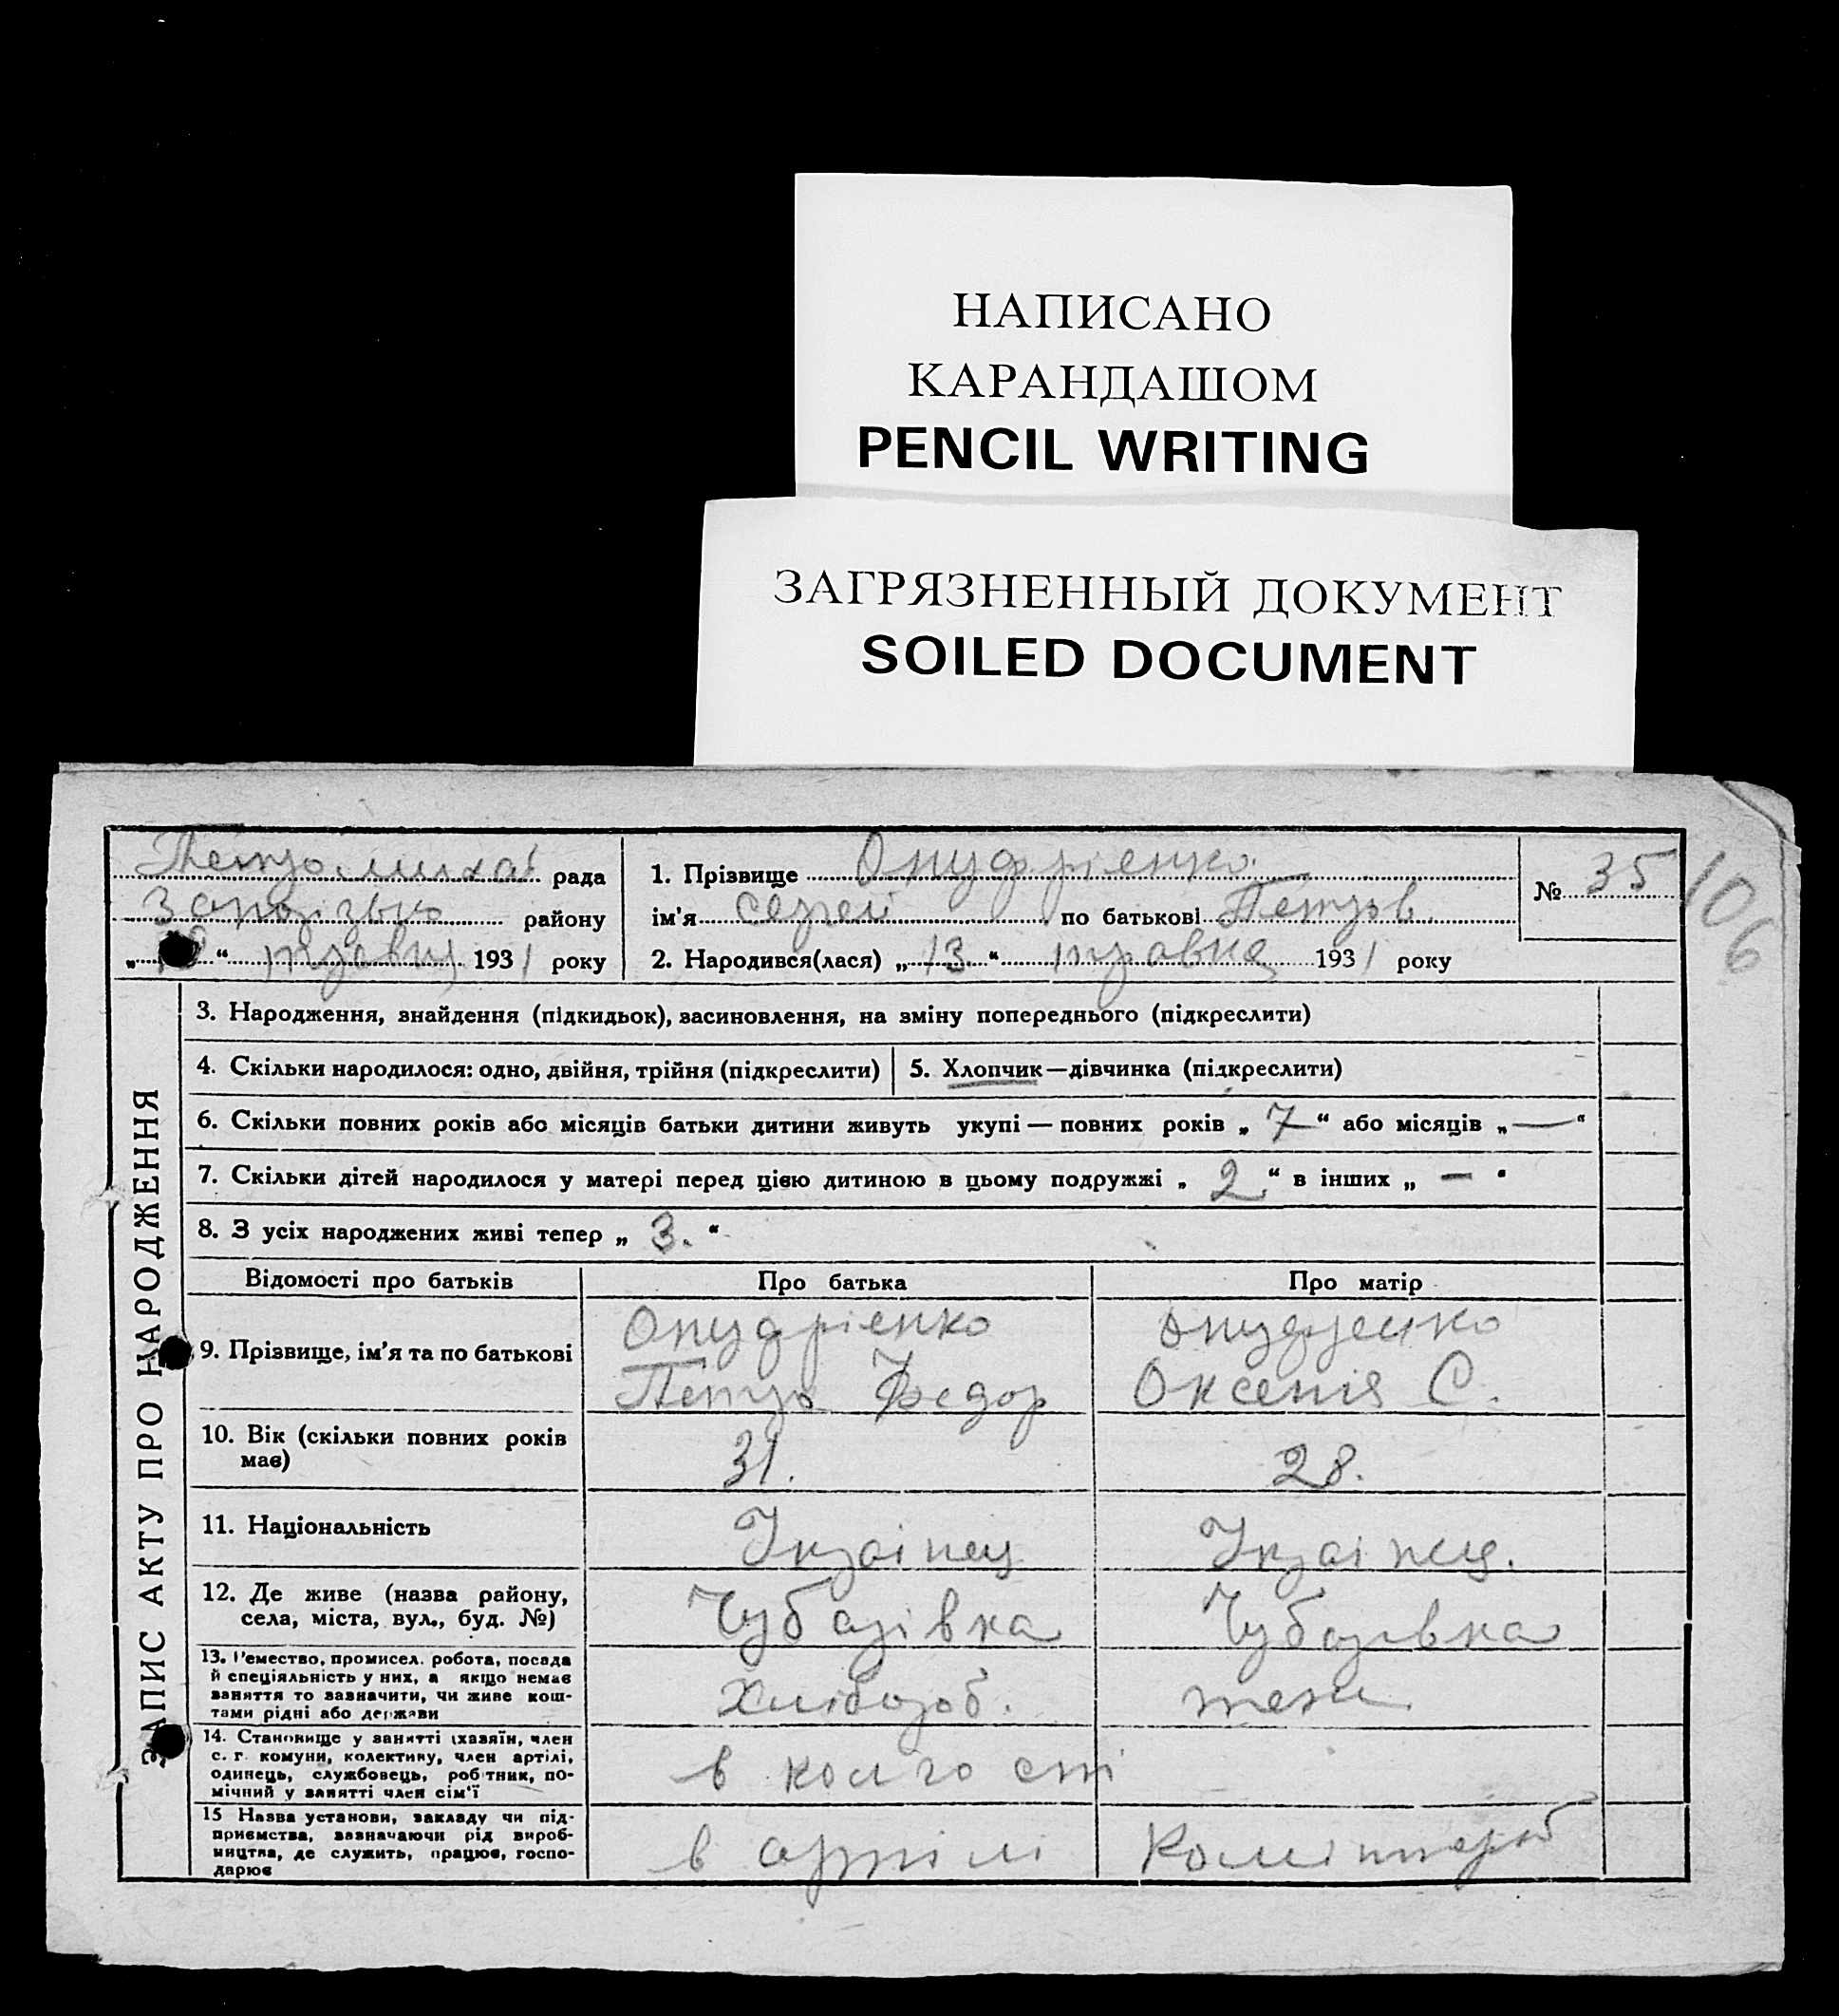 НАПИСАНО
КАРАНДАШОМ
PENCIL WRITING
ЗАГРЯЗНЕННЫЙ ДОКУМЕНТ
SOILED DOCUMENT
Петромихай рада
Запорізько району
„ “ травня 1931 року
1. Прізвище Онуфрієнко
ім'я Сергей по батькові Петров
2. Народився(лася) „13“ травня 1931 року
№ 35
106
ЗАПИС АКТУ ПРО НАРОДЖЕННЯ
3. Народження, знайдення (підкидьок), засиновлення, на зміну попереднього (підкреслити)
4. Скільки народилося: одно, двійня, трійня (підкреслити)
5. Хлопчик—дівчинка (підкреслити)
6. Скільки повних років або місяців батьки дитини живуть укупі — повних років „7“ або місяців „—“
7. Скільки дітей народилося у матері перед цією дитиною в цьому подружжі „2“ в інших „—“
8. З усіх народжених живі тепер „3.“
Відомості про батьків
Про батька
Про матір
9. Прізвище, ім'я та по батькові
Онуфрієнко
Петро Федор
Онуфрієнко
Оксенія С.
10. Вік (скільки повних років
має)
31.
28.
11. Національність
Украінец
Украінец.
12. Де живе (назва району,
села, міста, вул., буд. №)
Чубарівка
Чубарівка
13. Ремество, промисел, робота, посада
й спеціяльність у них, а якщо немає
заняття то зазначити, чи живе кош-
тами рідні або держави
Хлібороб.
14. Становище у занятті (хазяїн, член
с.-г. комуни, колективу, член артілі,
одинець, службовець, робітник, по-
мічний у занятті член сім'ї
в колгоспі
15 Назва установи, закладу чи під-
приємства, зазначаючи рід вироб-
ництва, де служить, працює, госпо-
дарює
в артілі